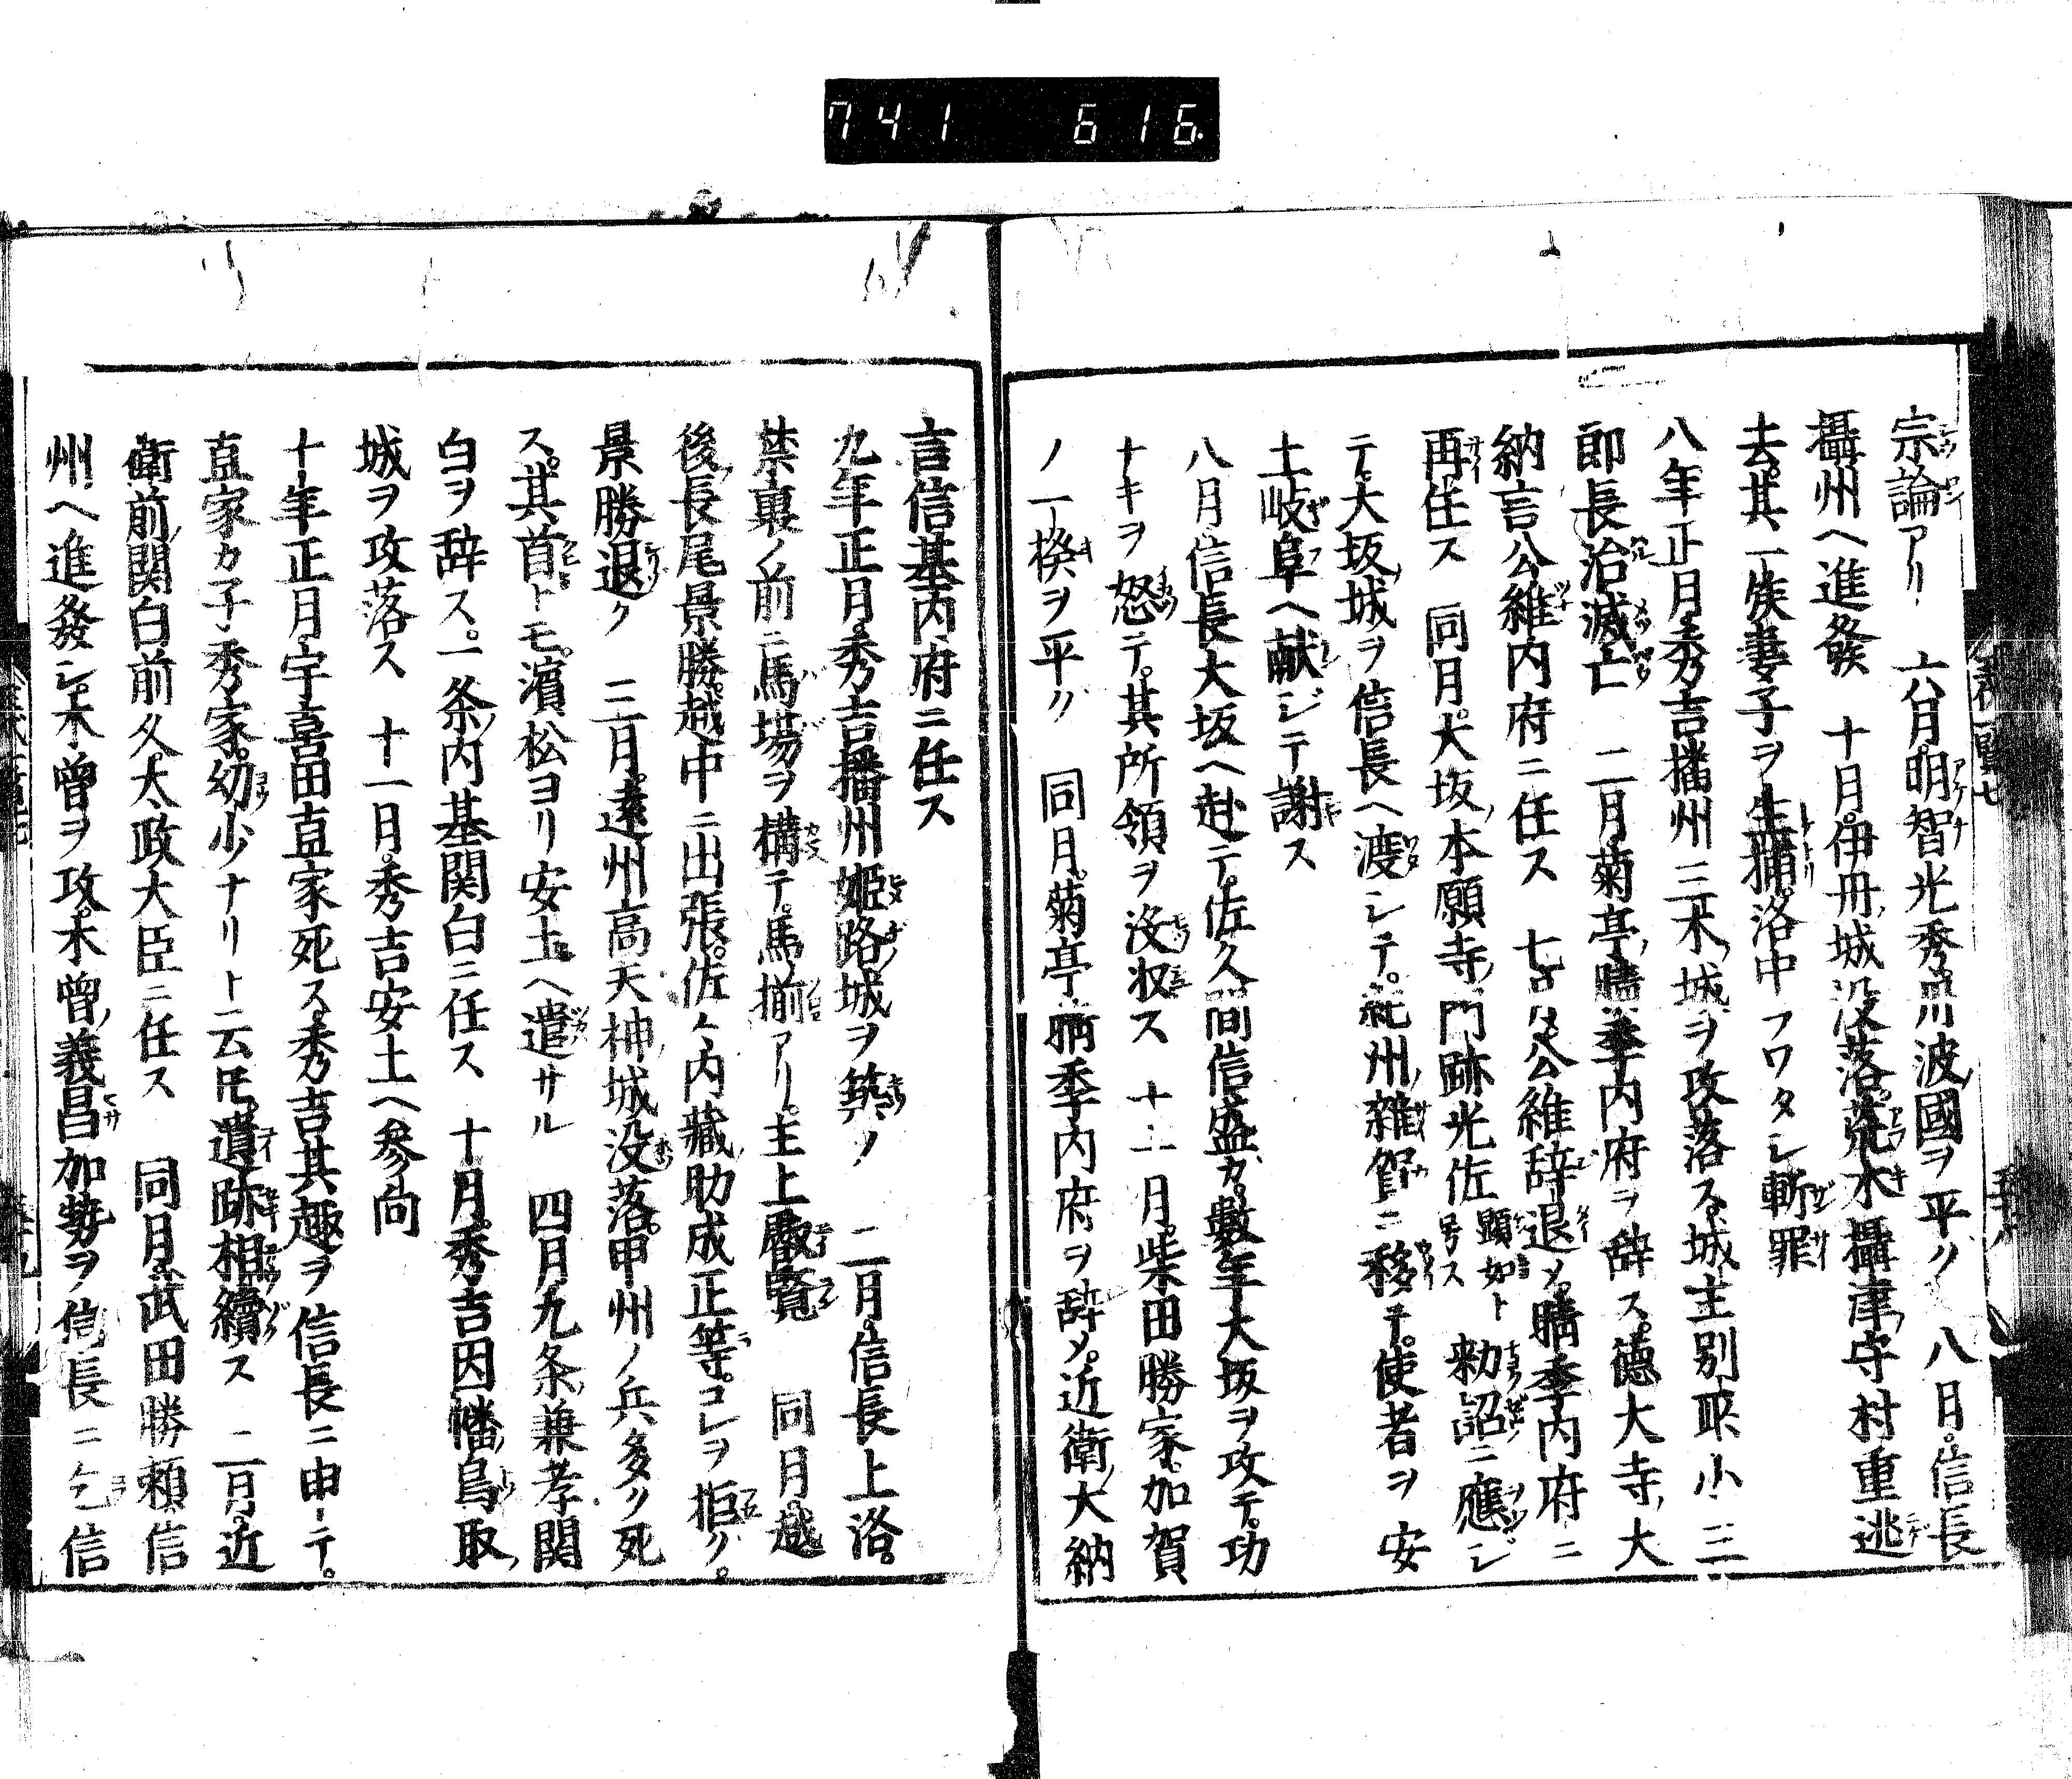 741 616
宗論アリ 六月。明智光秀丹波國ヲ平ク 八月。信長
攝州ヘ進發 十月。伊丹城没落。荒木攝津守村重逃
去。其一族妻子ヲ生捕。洛中フワタシ斬罪
八年正月。秀吉播州三木城ヲ攻落ス。城主別所小三
郎長治滅亡 二月。菊亭晴季内府ヲ辞ス。徳大寺大
納言公維内府ニ任ス 公維辞退メ。晴季内府ニ
再任ス 同月。大坂本願寺門跡光佐顕如ト号ス勅詔ニ應シ
テ。大坂城ヲ信長ヘ渡シテ。紀州雜賀ニ移テ。使者ヲ安
土岐阜ヘ献シテ謝ス
八月信長大坂ヘ赴テ。佐久間信盛カ。數年大坂ヲ攻テ。功
ナキヲ怒テ。其所領ヲ没収ス 十一月。柴田勝家。加賀
ノ一揆ヲ平ク 同月。菊亭晴季内府ヲ辞メ。近衛大納
言信基内府ニ任ス
九年正月。秀吉播州姫路城ヲ築ク 二月。信長上洛。
禁裏ノ前ニ馬場ヲ構テ。馬揃アリ。主上叡覧 同月。越
後長尾景勝。越中ニ出張。佐々内藏助成正等。コレヲ拒ク。
景勝退ク 三月。遠州高天神城没落。甲州ノ兵多ク死
ス。其首トモ。濱松ヨリ安土ヘ遣サル 四月九条兼孝関
白ヲ辞ス。一条内基関白ニ任ス 十月。秀吉因幡鳥取
城ヲ攻落ス 十一月。秀吉安土ヘ參向
十年正月。宇喜田直家死ス。秀吉其趣ヲ信長ニ申テ。
直家カ子秀家。幼少ナリト云𪜈。遺跡相續ス 二月。近
衛前関白前久。大政大臣ニ任ス 同月。武田勝頼信
州ヘ進發シ。木曽ヲ攻。木曽義昌加勢ヲ信長ニ乞信